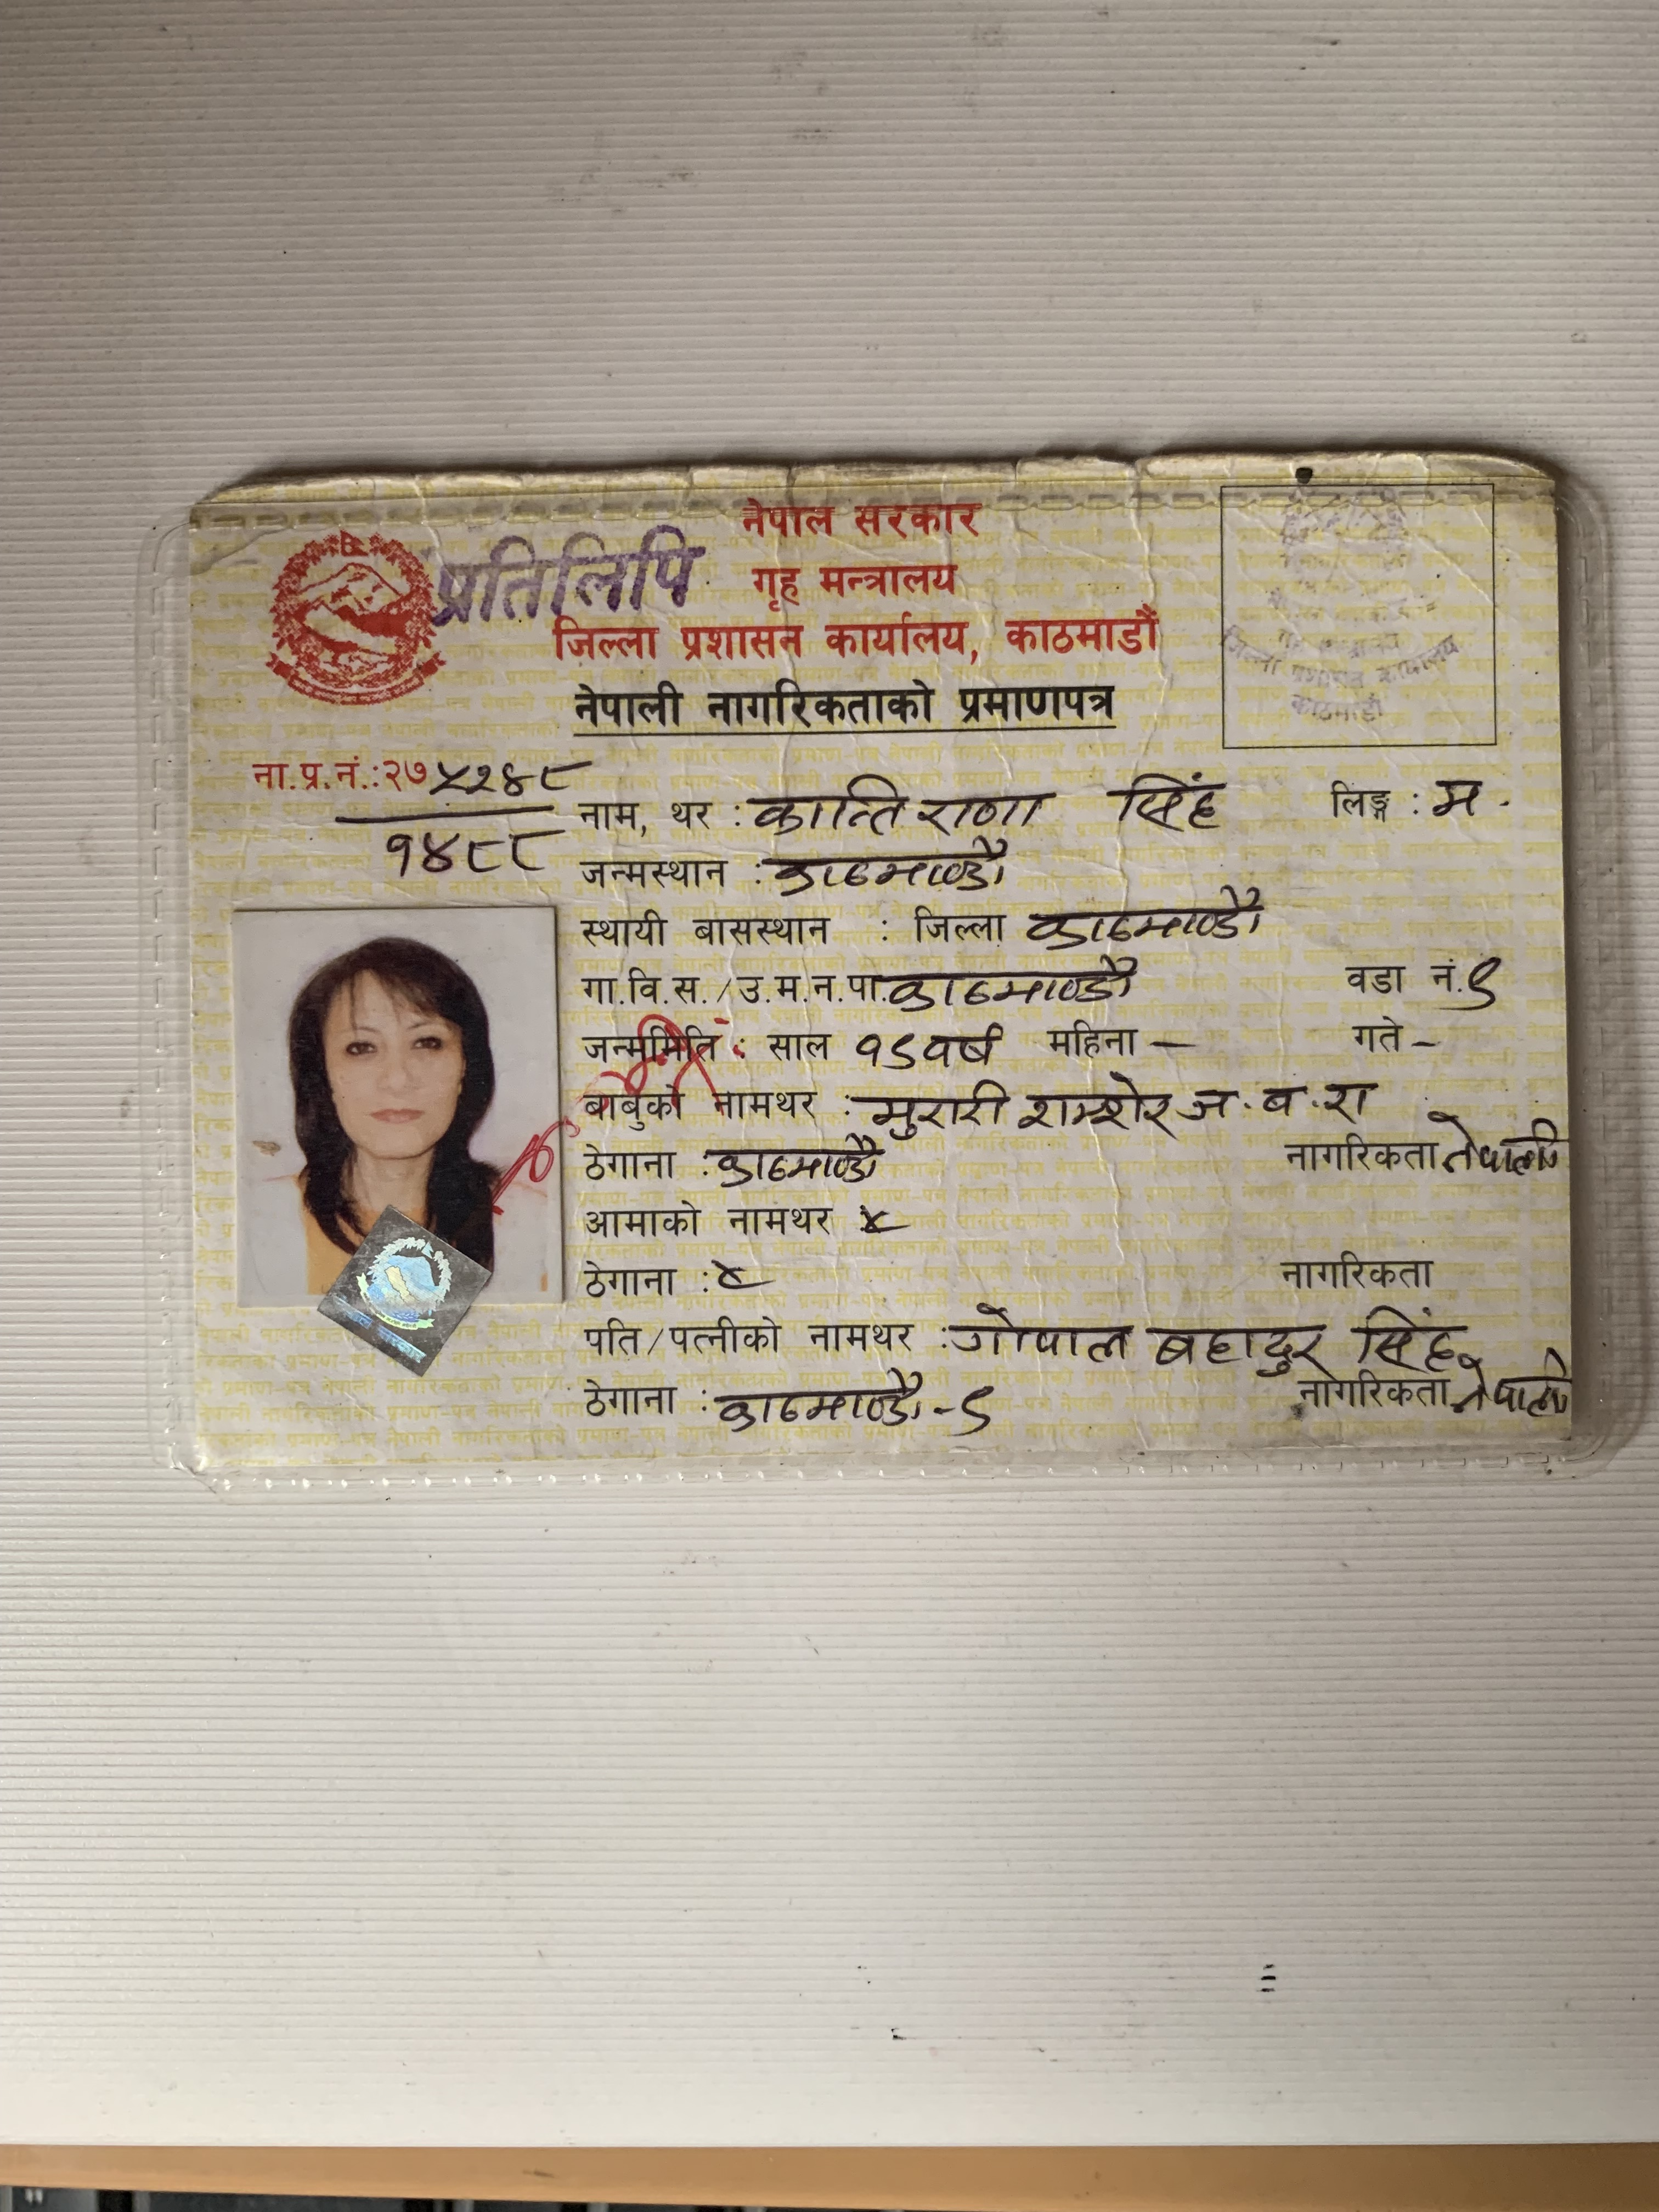 नेपाल सरकार
प्रतिलिपि
गृह मन्त्रालय
जिल्ला प्रशासन कार्यालय, काठमाडौं
नेपाली नागरिकताको प्रमाणपत्र
जिल्ला प्रशासन कार्यालय
काठमाडौं
ना.प्र.नं.:२७५२४८
१४८८
नाम, थर : कान्ति राणा सिंह लिङ्ग : म.
जन्मस्थान : काठमाण्डौ
स्थायी बासस्थान : जिल्ला काठमाण्डौ
गा.वि.स./उ.म.न.पा. काठमाण्डौ वडा नं. ९
जन्ममिति : साल १९ वर्ष महिना – गते –
बाबुको नामथर : मुरारी शम्शेर ज.ब.रा
ठेगाना : काठमाण्डौ नागरिकता नेपाली
आमाको नामथर ×
ठेगाना : × नागरिकता
पति/पत्नीको नामथर : गोपाल बहादुर सिंह
ठेगाना : काठमाण्डौ-९ नागरिकता नेपाली